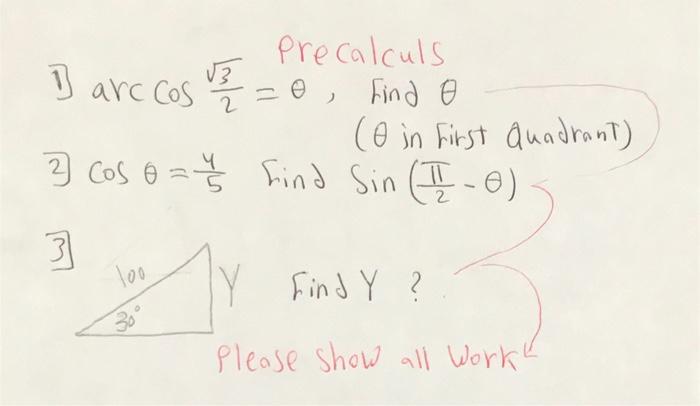 Precalculs
1] arc cos √3/2 = θ, Find θ
(θ in First Quadrant)
2] cos θ = 4/5 Find Sin (π/2 - θ)
3]
100 Y Find Y ?
30°
Please show all work